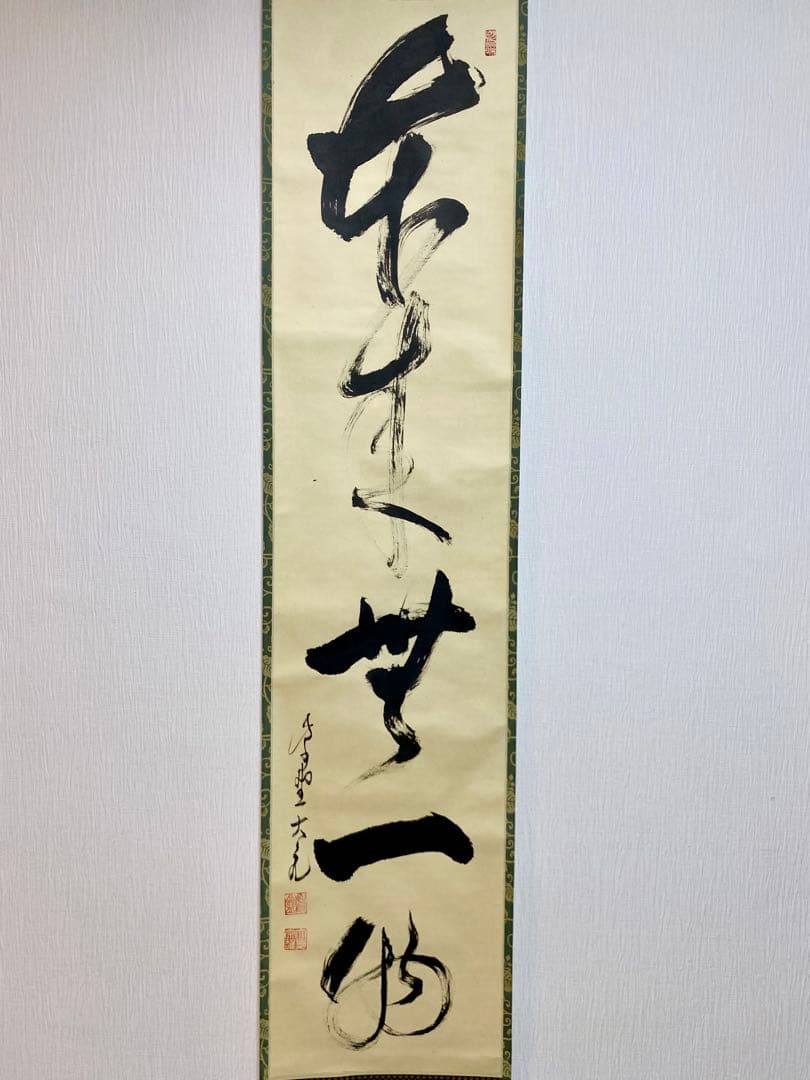 本来無一物
大亀